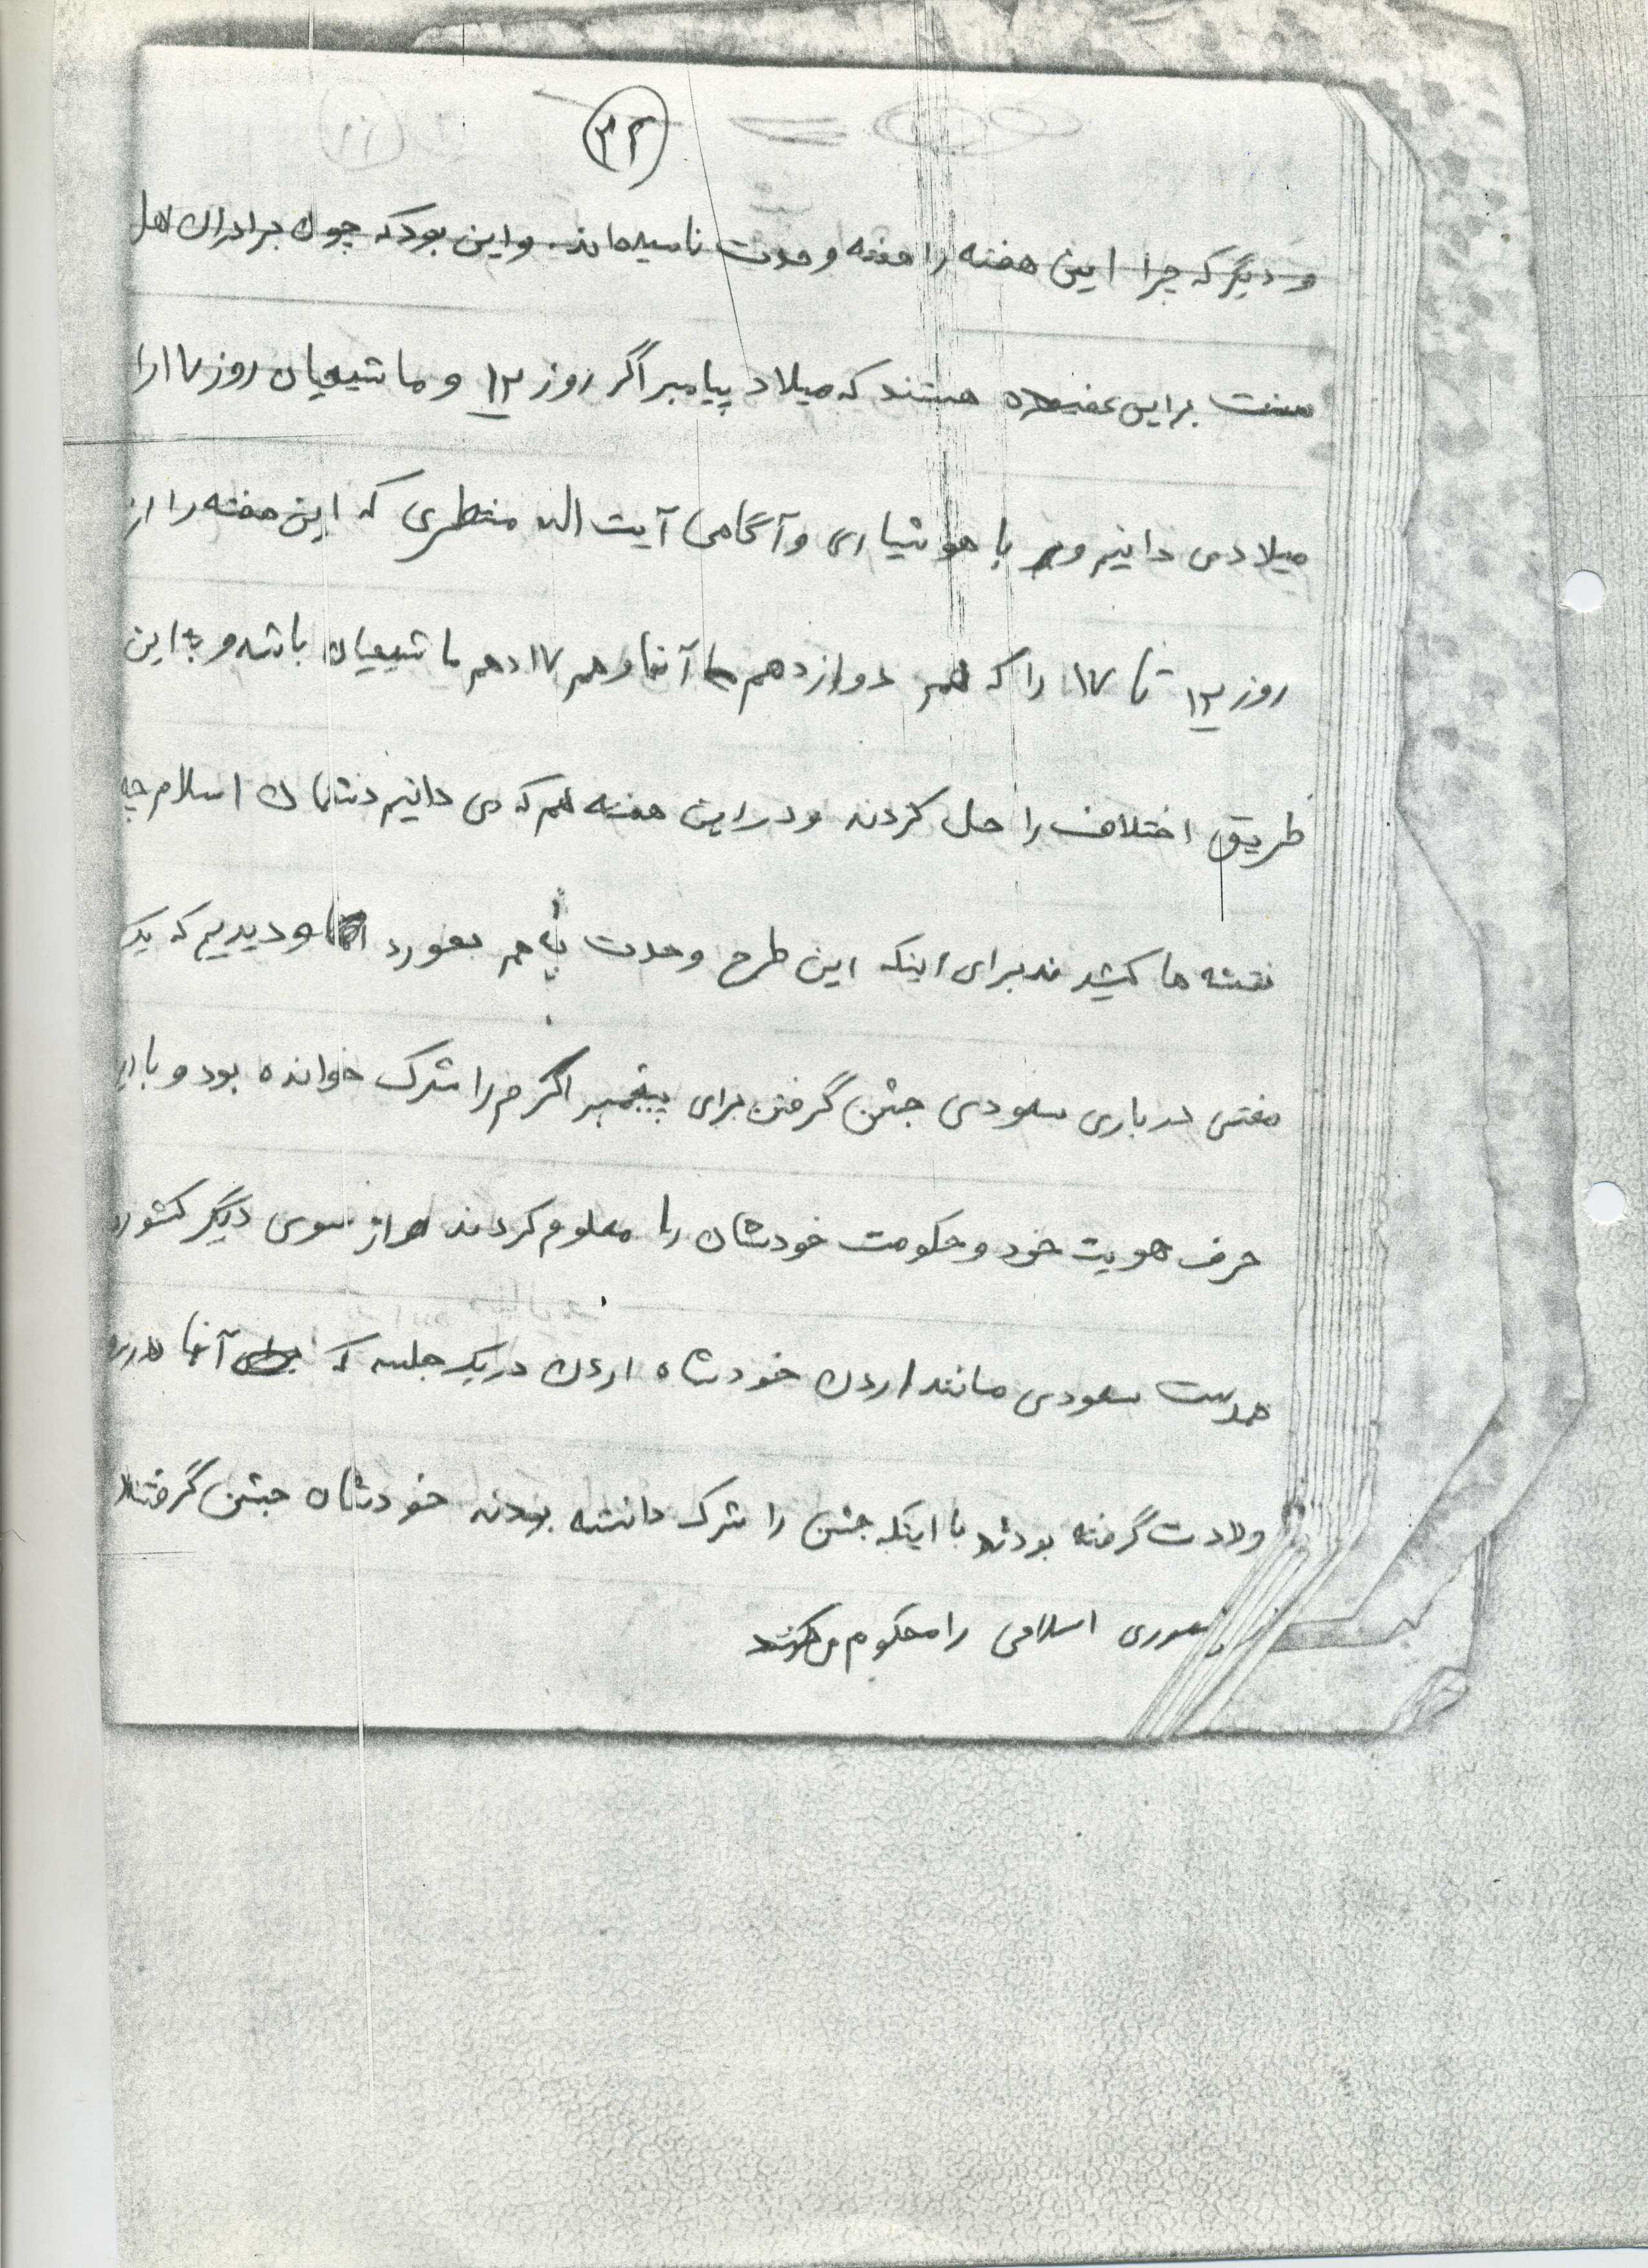 ۳۲
و دیگر که چرا این هفته را هفته وحدت نامیده‌اند. و این بود که چون برادران اهل
سنت براین عقیده هستند که میلاد پیامبر اگر روز ۱۲ و ما شیعیان روز ۱۷ را
میلاد می دانیم و با هوشیاری و آگاهی آیت الله منتظری که این هفته را از
روز ۱۲ تا ۱۷ را که هم دوازدهم آنها و هم ۱۷ دهم ما شیعیان باشد و به این
طریق اختلاف را حل کردند و در این هفته هم که می دانیم دشمنان اسلام چه
نقشه ها کشیدند برای اینکه این طرح وحدت بهم بخورد و دیدیم که یک
مفتی درباری سعودی جشن گرفتن برای پیغمبر اکرم را شرک خوانده بود و با این
حرف هویت خود و حکومت خودشان را معلوم کردند و از سوی دیگر کشور
همدست سعودی مانند اردن خود شاه اردن در یک جلسه که آنها
ولادت گرفته بودند با اینکه جشن را شرک دانسته بودند خودشان جشن گرفتند
جمهوری اسلامی را محکوم می‌کنند